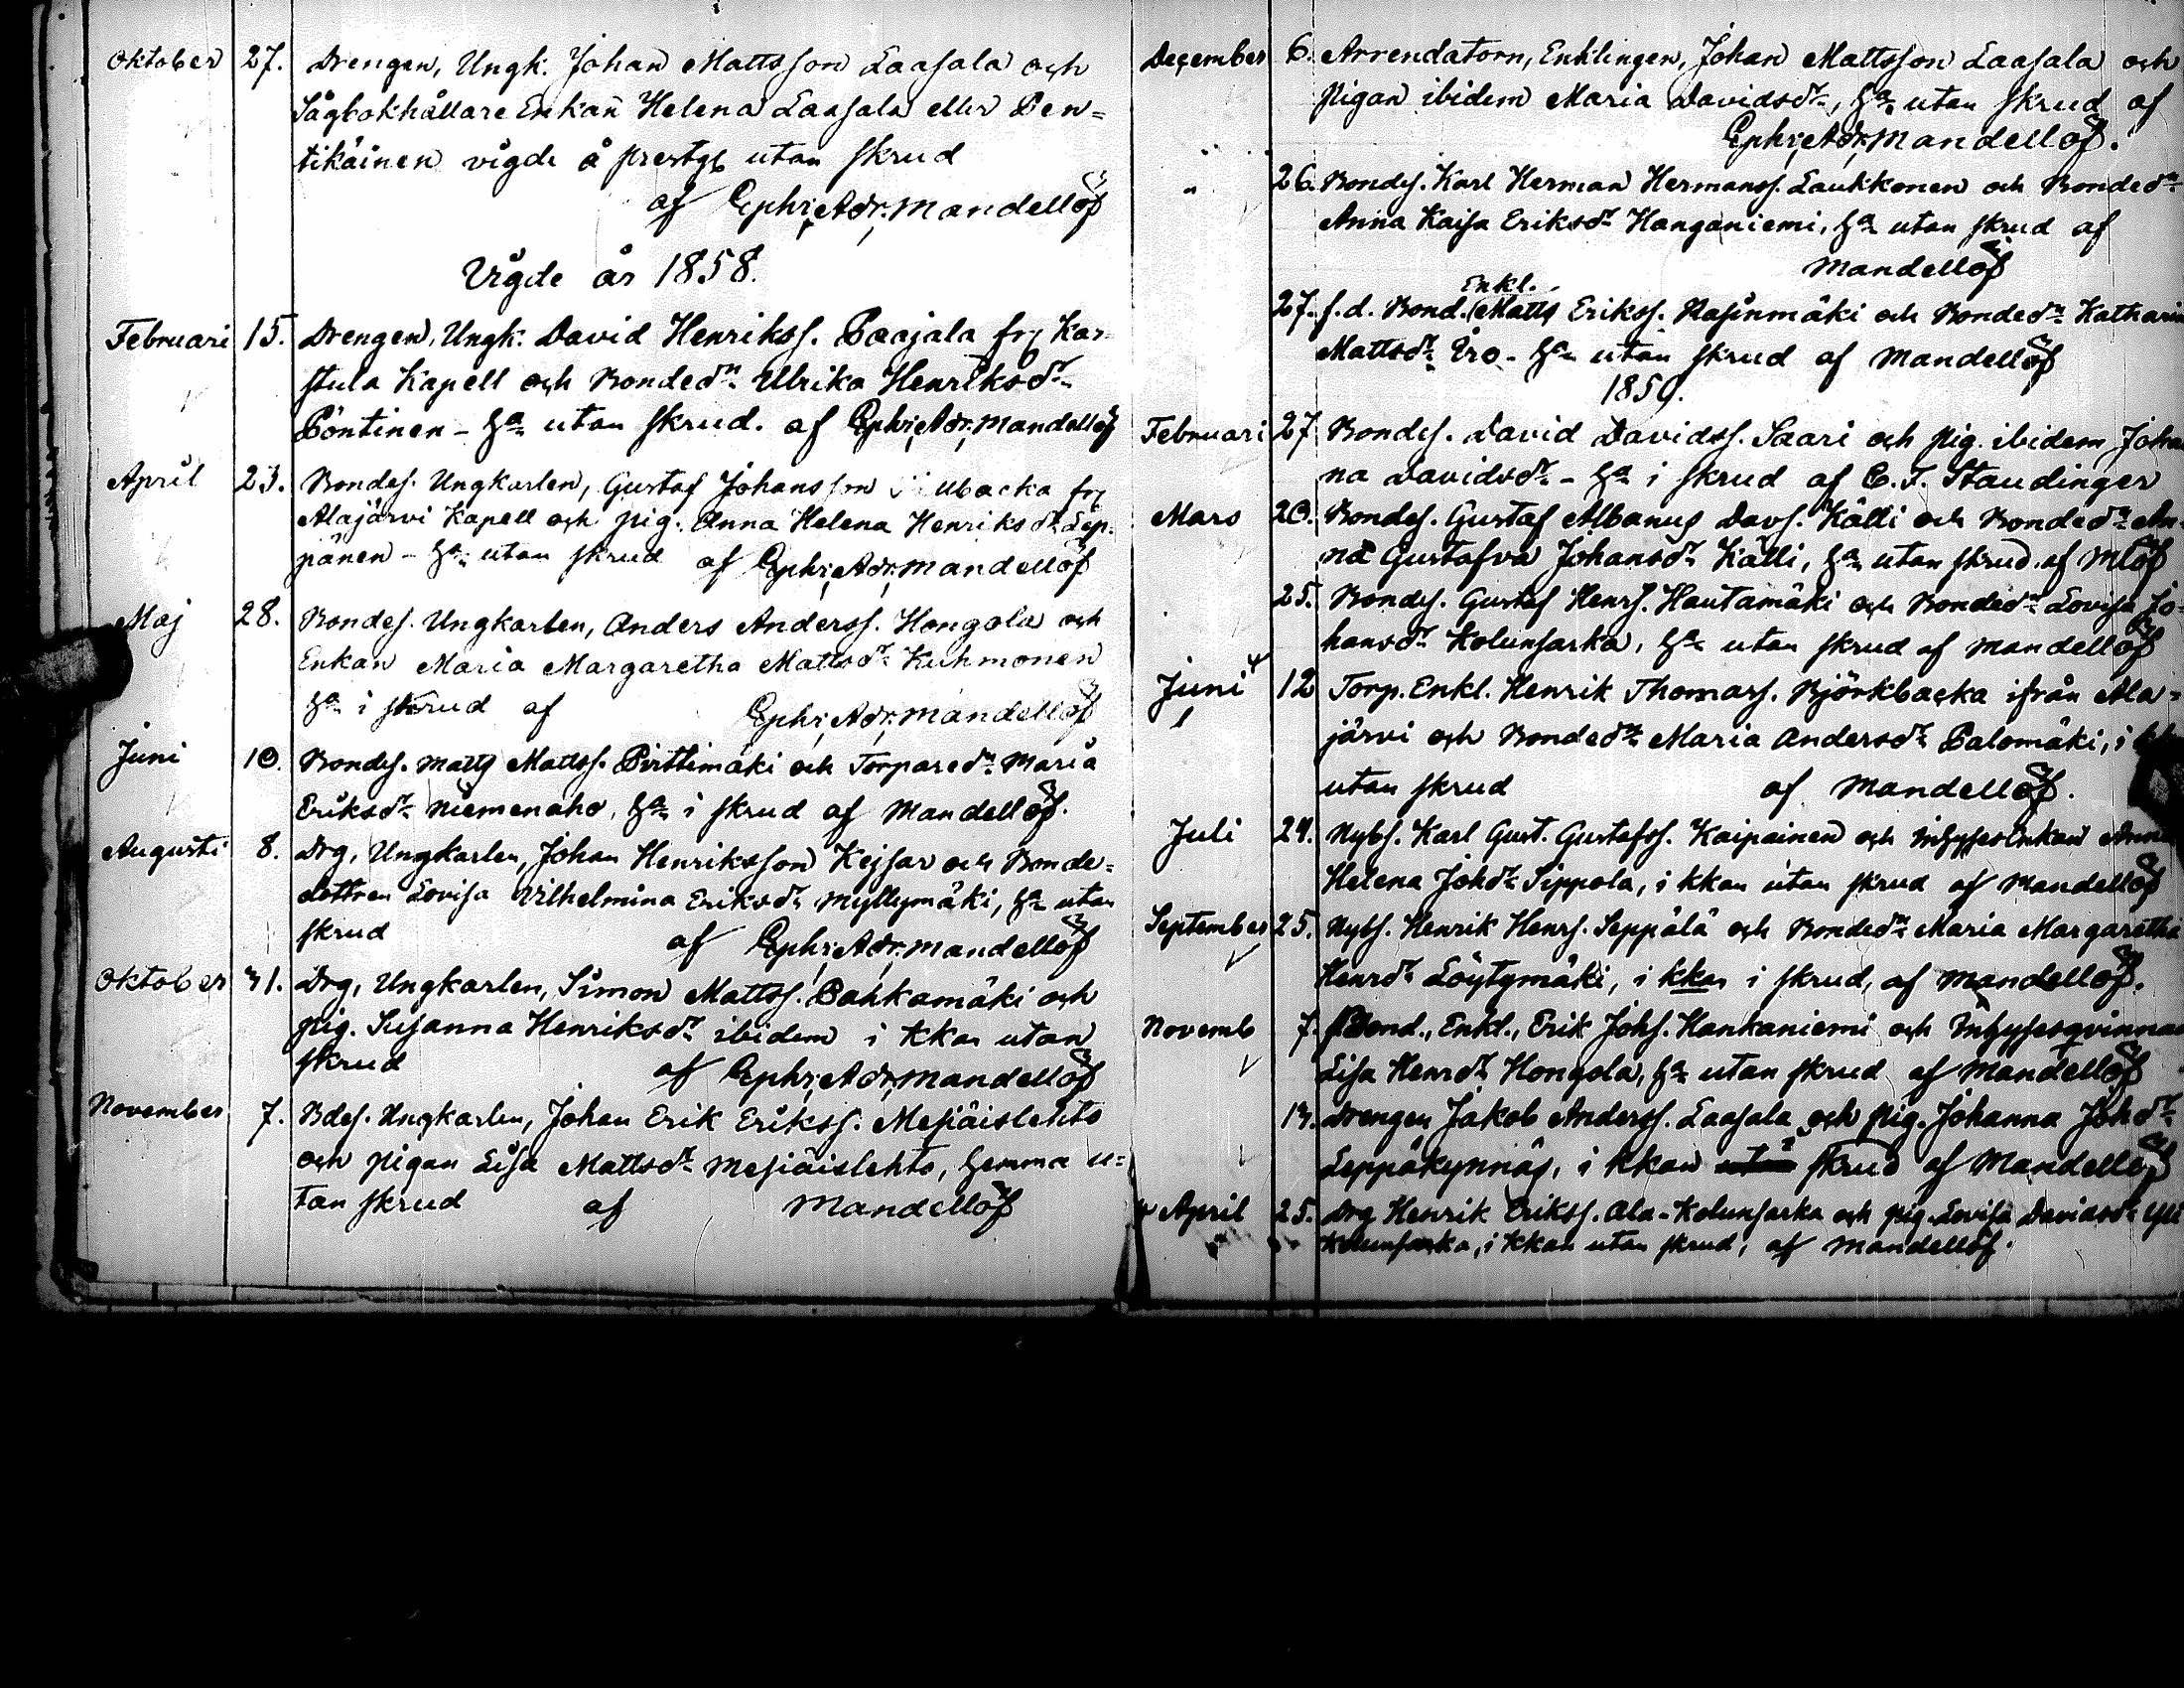 Oktober 27. Drengen, Ungk. Johan Mattsson Laasala och
Sågbokhållare Enkan Helena Laasala eller Pen=
tikäinen vigde å prestg. utan skrud
af Ephr. Adr. Mandellöf
Vigde år 1858.
Februari 15. Drengen, Ungk. David Henrikss. Paajala fr. Kar-
stula Kapell och Bondedn. Ulrika Henriksdr.
Pöntinen - ha utan skrud. af Ephr. Adr. Mandellöf
April 23. Bondes. Ungkarlen, Gustaf Johansson ubacka fr.
Alajärvi Kapell och pig. Anna Helena Henriksdr. Lep-
pänen - ha utan skrud af Ephr. Adr. Mandellöf
Maj 28. Bondes. Ungkarlen, Anders Anderss. Hongola och
Enkan Maria Margaretha Mattsdr. Kuhmonen
ha i skrud af Ephr. Adr. Mandellöf
Juni 10. Bondes. Matts Mattss. Pirttimäki och Torparedn. Maria
Eriksdr. Niemenaho, ha i skrud af Mandellöf.
Augusti 8. Drg, Ungkarlen, Johan Henriksson Kejsar och Bonde=
dottren Lovisa Vilhelmina Eriksdr. Myllymäki, ha utan
skrud af Ephr. Adr. Mandellöf
Oktober 31. Drg, Ungkarlen, Simon Mattss. Pahkamäki och
pig. Susanna Henriksdr. ibidem i kkan utan
skrud af Ephr. Adr. Mandellöf
November 7. Bdes. Ungkarlen, Johan Erik Erikss. Mesiäislehto
och pigan Lisa Mattsdr. Mesiäislehto, hemma u=
tan skrud af Mandellöf
December 6. Arrendatorn, Enklingen, Johan Mattsson Laasala och
pigan ibidem Maria Davidsdr., ha utan skrud af
Ephr. Adr. Mandellöf.
" 26. Bondes. Karl Herman Hermanss. Laukkonen och Bondedn.
Anna Kaisa Eriksdr. Hanganiemi, ha utan skrud af
Mandellöf
Enkl.
27. f.d. Bond. Matts Erikss. Rasinmäki och Bondedn. Katharin
Mattsdr. Iro - ha utan skrud af Mandellöf
1859.
Februari 27 Bondes. David Davidss. Saari och pig. ibidem Johan
na Davidsdr. - ha i skrud af C. F. Staudinger
Mars 20. Bondes. Gustaf Albanus Davs. Källi och Bondedn. An-
na Gustafva Johansdr. Källi, ha utan skrud. af Mlöf
25. Bondes. Gustaf Henrs. Hautamäki och Bondedn. Lovisa Jo-
hansdr. Kolunsarka, ha utan skrud af Mandellöf
Juni 12 Torp. Enkl. Henrik Thomass. Björkbacka ifrån Ala=
järvi och Bondedn. Maria Andersdr. Palomäki, i
utan skrud af Mandellöf.
Juli 24. Nybs. Karl Gust. Gustafss. Kaipainen och Inhysesenkan Anna
Helena Johdr. Sippola, i kkan utan skrud af Mandellöf
September 25. Nybs. Henrik Henrs. Seppälä och Bondedn. Maria Margaretha
Henrdr. Löytymäki, i kkan i skrud, af Mandellöf.
Novemb 7. Bond., Enkl., Erik Johs. Hankaniemi och Inhysesqvinnan
Lisa Henrdr. Hongola, ha utan skrud af Mandellöf
13. Drengen Jakob Anderss. Laasala och pig. Johanna Johdr.
Leppäkynnäs, i kkan utan i skrud af Mandellöf
April 25. Drg Henrik Erikss. Ala-Kolunsarka och pig. Lovisa Davidsdr. Yli
Kolunsarka, i kkan utan skrud, af Mandellöf.